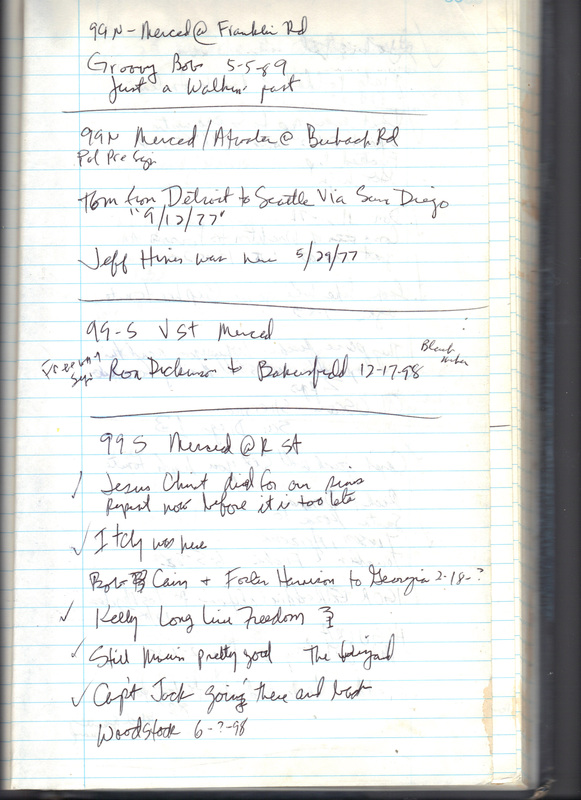 99N - Merced @ Franklin Rd
Groovy Bob 5-5-89
Just a Walkin' past
99N Merced/Atwater @ Buhach Rd
Pol Pre Sign
Tom from Detroit to Seattle Via San Diego
"9/12/77"
Jeff Hines was here 5/29/77
99-S V St Merced
Freeway Sign
Black
Ron Dickinson to Bakersfield 12-17-98
99 S Merced @ R St
✓ Jesus Christ died for our sins
Repent now before it is too late
✓ Itchy was here
Bob Cain + Foster Harrison to Georgia 2-18-?
✓ Kelly Long Live Freedom
✓ Still Movin pretty good The
✓ Cap't Jack going there and back
Woodstock 6-?-98